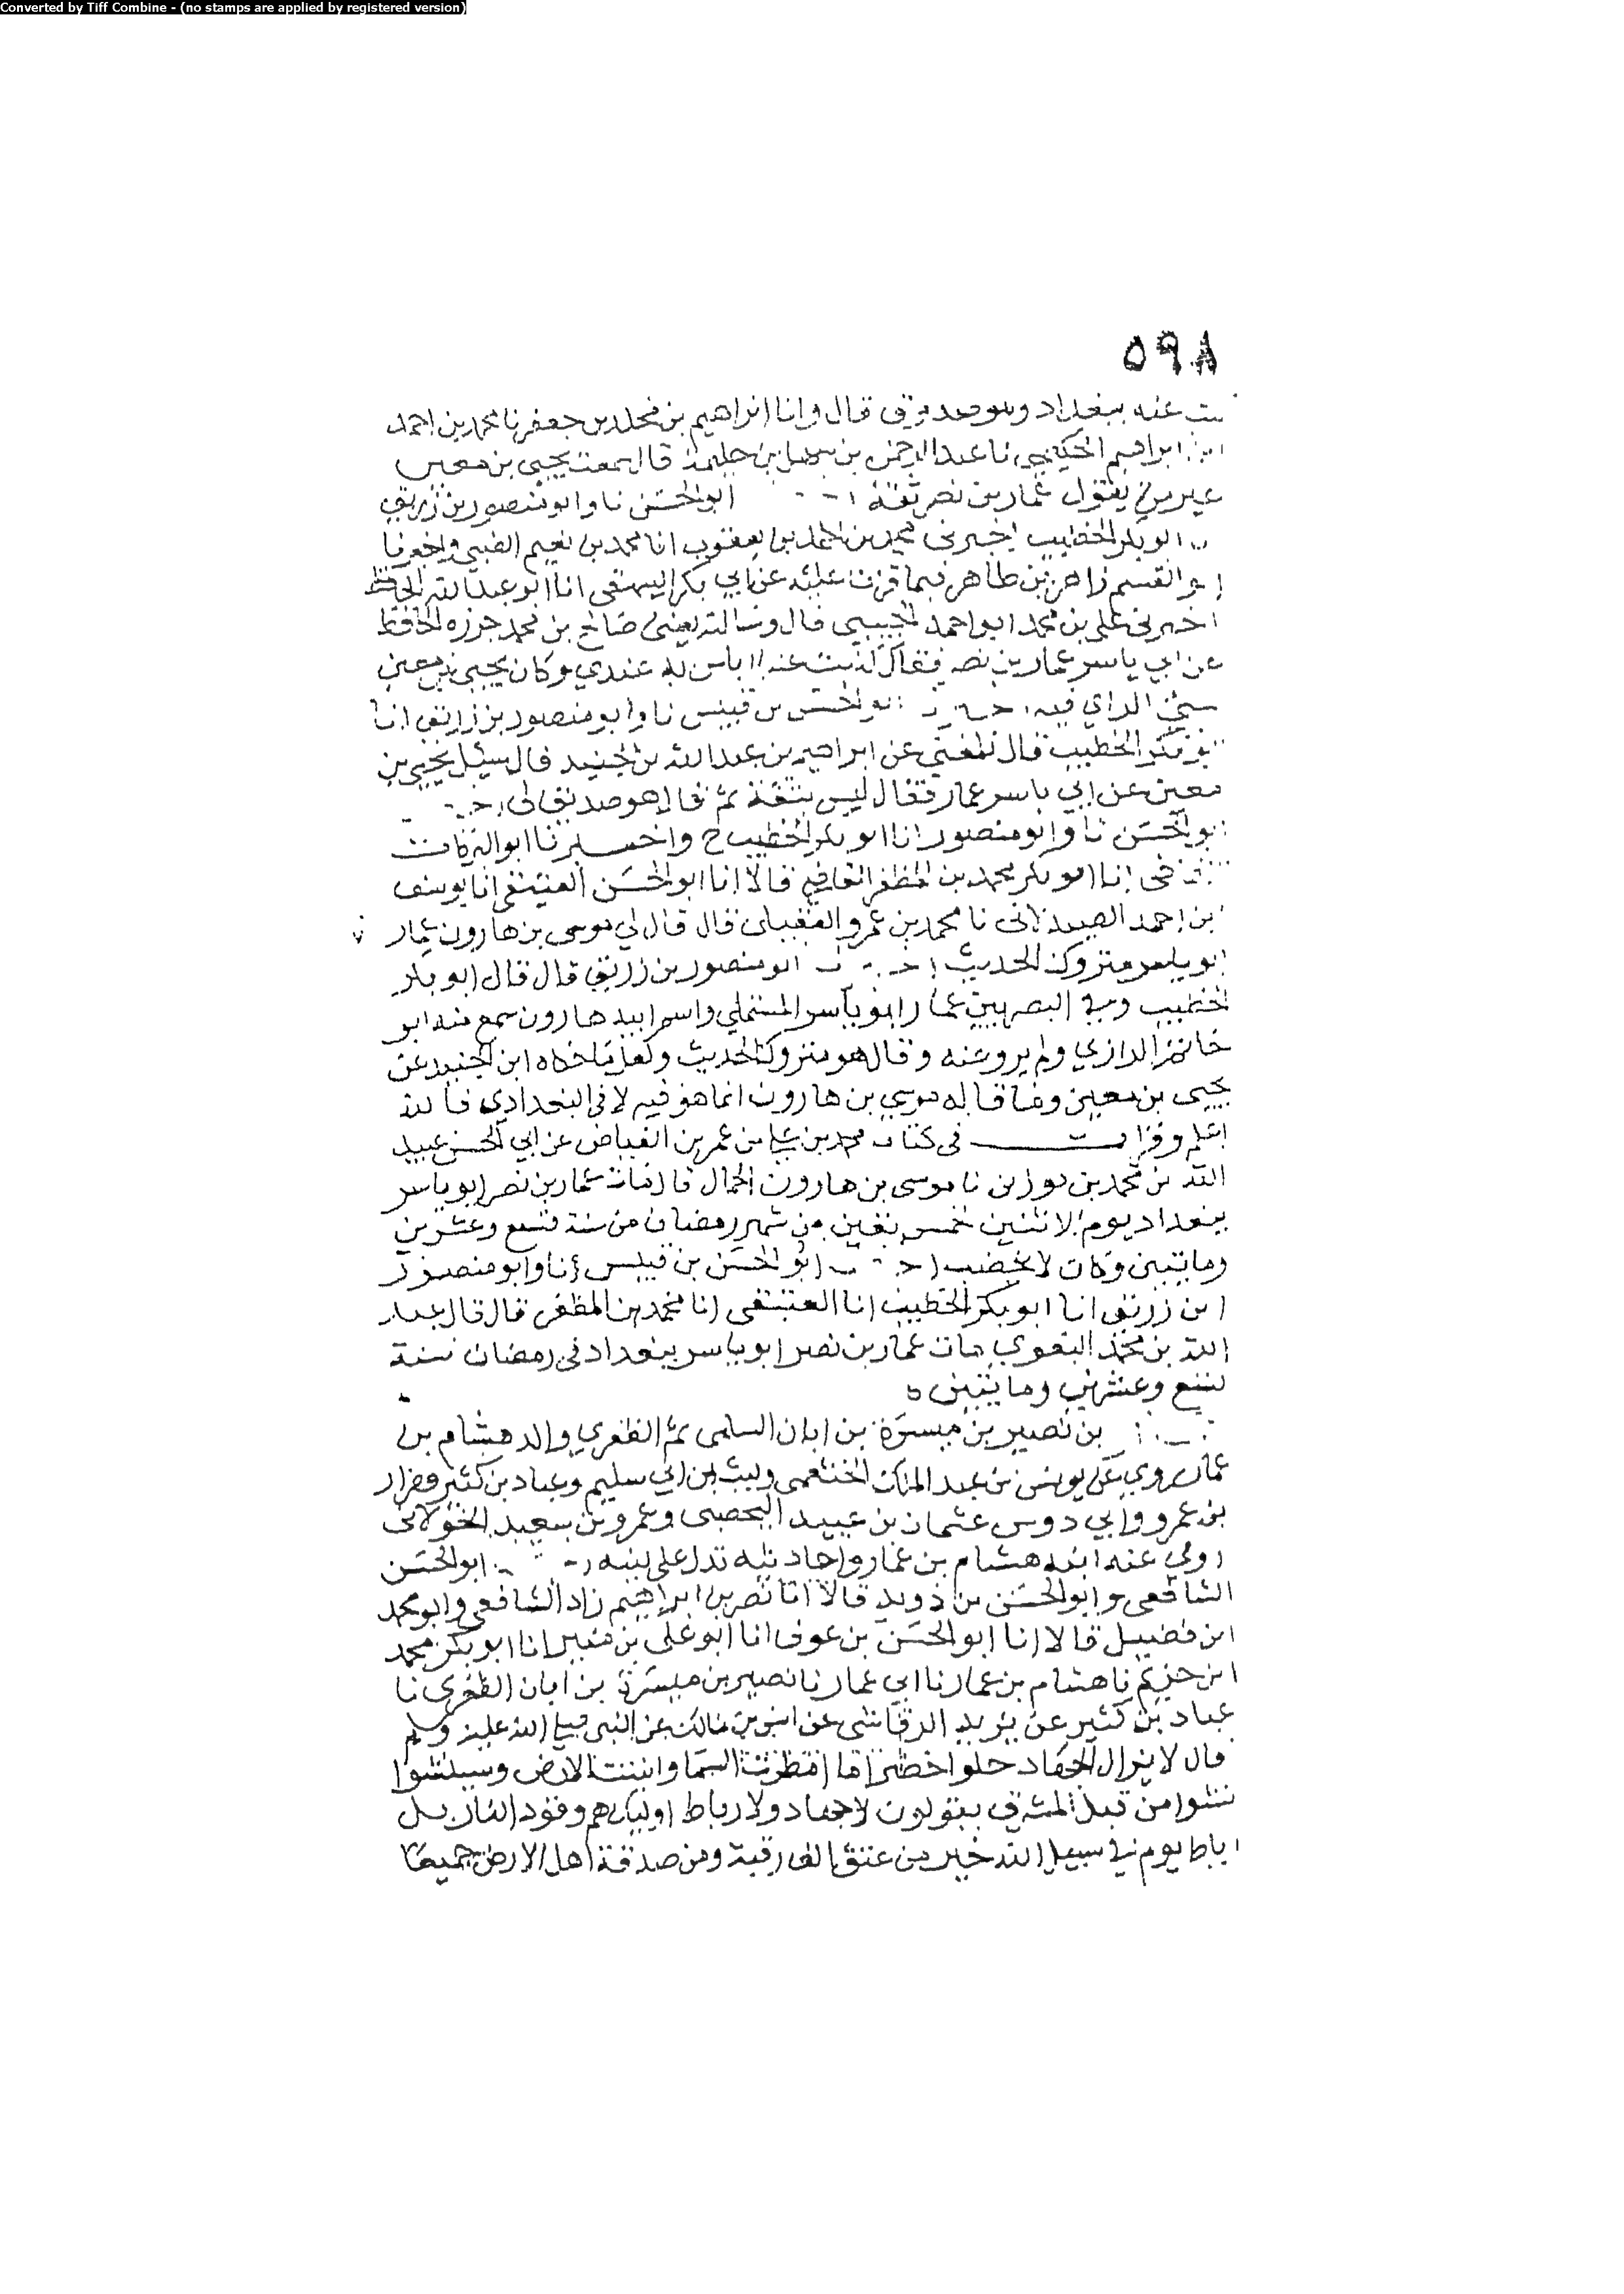 Converted by Tiff Combine - (no stamps are applied by registered version)
٥٩٨
عنه ببغداد وهو صدوق قال وانا ابراهيم بن مخلد بن جعفر نا محمد بن احمد
ابراهيم الحكيمي نا عبد الرحمن بن سهل بن حليمة قال سمعت يحيى بن معين
غير مرة يقول عمار بن نصر ثقة ابو الحسن نا وابو منصور بن زريق
ابو بكر الخطيب اخبرني محمد بن احمد بن يعقوب انا محمد بن نعيم الضبي واخبرنا
ابو القسم زاهر بن طاهر فيما قرئت عليه عن ابي بكر البيهقي انا ابو عبد الله الحافظ
اخبرني علي بن محمد ابو احمد الحبيبي قال وسالته يعني صالح بن محمد جزره الحافظ
عن ابي ياسر عمار بن نصر فقال كتبت عنه لا باس به عندي وكان يحيى بن معين
سيئ الراي فيه ابو الحسن بن قبيس نا وابو منصور بن زريق انا
ابو بكر الخطيب قال بلغني عن ابراهيم بن عبد الله بن الجنيد قال سئل يحيى بن
معين عن ابي ياسر عمار فقال ليس بثقة ثم قال هو صديق لي
ابو الحسن نا وابو منصور انا ابو بكر الخطيب ح واخبرنا ابو البركات
انا ابو بكر محمد بن المظفر القاضي قالا انا ابو الحسن العتيقي انا يوسف
بن احمد الصيدلاني نا محمد بن عمرو العقيلي قال قال لي موسى بن هارون عمار
ابو ياسر متروك الحديث ابو منصور بن زريق قال قال ابو بكر
الخطيب وفي البصريين عمار ابو ياسر المستملي واسم ابيه هارون سمع منه ابو
حاتم الرازي ولم يرو عنه وقال هو متروك الحديث ولعل ما حكاه ابن الجنيد عن
يحيى بن معين وما قاله موسى بن هارون انما هو فيه لا في البغدادي فالله
اعلم وقرات في كتاب محمد بن علي بن عمر بن الفياض عن ابي الحسن عبيد
الله بن محمد بن نا موسى بن هارون الحمال قال مات عمار بن نصر ابو ياسر
ببغداد يوم الاثنين لخمس بقين من شهر رمضان من سنة تسع وعشرين
ومايتين وكان لا يخضب ابو الحسن بن قبيس نا وابو منصور
ابن زريق انا ابو بكر الخطيب انا العتيقي انا محمد بن المظفر قال قال عبد
الله بن محمد البغوي مات عمار بن نصر ابو ياسر ببغداد في رمضان سنة
تسع وعشرين ومايتين ه
بن نصير بن ميسرة بن ابان السلمي ثم الظفري والد هشام بن
عمار روى عن يونس بن عبد الملك الخثعمي وليث بن ابي سليم وعباد بن كثير وضرار
بن عمرو وابي دوس عثمان بن عبيد اليحصبي وعمرو بن سعيد الخولاني
روى عنه ابنه هشام بن عمار واحاديثه تدل على لينه ابو الحسن
الشافعي وابو الحسن بن ذويد قالا انا نصر بن ابراهيم زاد الشافعي وابو محمد
ابن فضيل قالا انا ابو الحسن بن عوف انا ابو علي بن منير انا ابو بكر محمد
ابن خريم نا هشام بن عمار نا ابي عمار نا نصير بن ميسرة بن ابان الظفري نا
عباد بن كثير عن يزيد الرقاشي عن انس بن مالك عن النبي صلى الله عليه وسلم
قال لا يزال الجهاد حلوا خضرا ما امطرت السما وانبتت الارض وسينشوا
نشوا من قبل المشرق يقولون لا جهاد ولا رباط اوليك هم وقود النار بل
رباط يوم في سبيل الله خير من عتق الف رقبة ومن صدقة اهل الارض جميعا